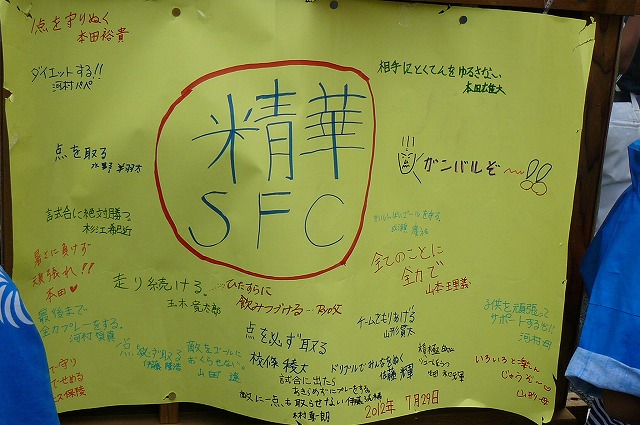 1点を守りぬく
本田裕貴
ダイエットする!!
河村パパ
点を取る
試合に絶対勝つ
杉江
暑さに負けず
頑張れ!!
本田
最後まで
全力プレーをする。
河村
精華
SFC
相手にとくてんをゆるさない
本田雄大
ガンバルぞ〜
全てのことに
全力で
山本理義
走り続ける。
玉木 竜太郎
ひたすらに
飲みつづける…
点を必ず取る
枝條 稜太
点を必ず取る
敵をゴールに
おくらせない。
山田
チームでもりあげる
山形
ドリブルでみんなをぬく
佐藤 輝
積極的に
子供を頑張って
サポートするぞ!
河村
いろいろと楽しん
じゃうぞ〜
山形 母
試合に出たら
あきらめずにプレーをする。
敵に一点も取らせない
木村 真一朗
2012年 7月29日